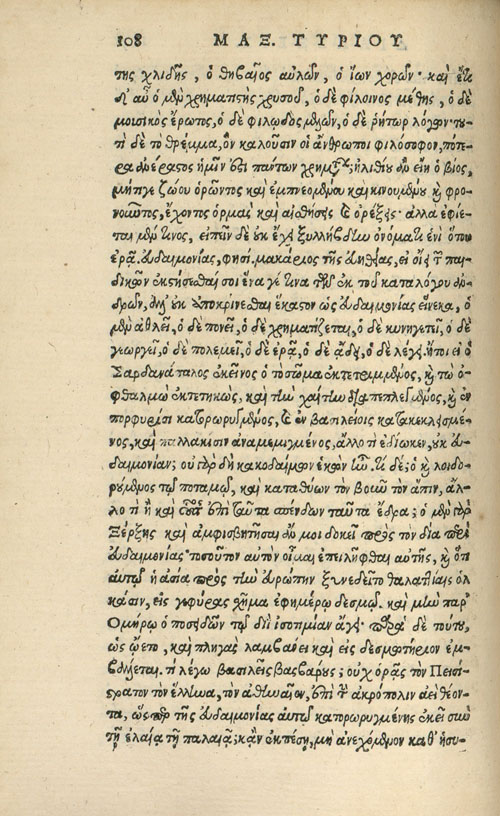 108 ΜΑΞ. ΤΥΡΙΟΥ
της χλιδῆς, ὁ θηβαῖος αὐλῶν, ὁ ἴων χορῶν· καὶ ἔτι
δ' αὖ ὁ μὲν χρηματιστὴς χρυσοῦ, ὁ δὲ φίλοινος μέθης, ὁ δὲ
μοισικὸς ἔρωτος, ὁ δὲ φιλωδὸς μελῶν, ὁ δὲ ῥήτωρ λόγων· του-
τὶ δὲ τὸ θρέμμα, ὃν καλοῦσιν οἱ ἄνθρωποι φιλόσοφον, πότε-
ρα ἀνέραστος ἡμῖν ἐστι πάντων χρημάτων; ἠλιθίου ἂν εἴη ὁ βίος,
μήπγε ζώου ὁρῶντος καὶ ἐμπνεομένου καὶ κινουμένου καὶ φρο-
νοῦντος, ἔχοντος ὁρμὰς καὶ αἰσθήσεις καὶ ὀρέξεις· ἀλλὰ ἐφίε-
ται μέν τινος, εἰπεῖν δὲ οὐκ ἔχει ξυλλήβδην ὀνόματι ἑνὶ ὅτου
ἐρᾷ. εὐδαιμονίας, φησί. μακάριος τῆς εὐηθείας, εἰ οἴει τῶν παι-
δικῶν ἐκστήσεσθαί σοι ἕνα γέ τινα τῶν ἐκ τοῦ καταλόγου ἀν-
δρῶν, ἀλλ' οὐκ ὑποκρινεῖσθαι ἕκαστον ὡς εὐδαιμονίας εἵνεκα, ὁ
μὲν ἀθλεῖ, ὁ δὲ πονεῖ, ὁ δὲ χρηματίζεται, ὁ δὲ κυνηγετεῖ, ὁ δὲ
γεωργεῖ, ὁ δὲ πολεμεῖ, ὁ δὲ ἐρᾷ, ὁ δὲ ᾄδει, ὁ δὲ λέγει. ἤτοι εἰ ὁ
Σαρδανάπαλος ἐκεῖνος ὁ τὸ σῶμα ἐκτετριμμένος, καὶ τὼ ὀ-
φθαλμὼ ἐκτετηκὼς, καὶ τὴν χαίτην διαπεπλεγμένος, καὶ ἐν
πορφυρίσι κατορωρυγμένος, καὶ ἐν βασιλείοις κατακεκλεισμέ-
νος, καὶ παλλακίσιν ἀναμεμιγμένος, ἄλλό τι ἐδίωκεν, οὐκ εὐ-
δαιμονίαν; οὐ γὰρ δὴ κακοδαίμων ἑκὼν ἦν. τί δὲ; ὁ καὶ λοιδο-
ρούμενος τῷ ποταμῷ, καὶ καταθύων τὸν βοῦν τὸν ἆπιν, ἄλ-
λο τι ἢ καὶ οὗτος ἐπὶ ταῦτα σπεύδων ταῦτα ἔδρα; ὁ μὲν γὰρ
Ξέρξης καὶ ἀμφισβητῆσαι ἄν μοι δοκεῖ πρὸς τὸν δία περὶ
εὐδαιμονίας· τοσοῦτον αὐτὸν οἶμαι ἐπειλῆφθαι αὐτῆς, καὶ ὅτι
αὐτῷ ἡ ἀσία πρὸς τὴν εὐρώπην ξυνεδεῖτο θαλατίαις ὁλ
κάσιν, εἰς γεφύρας χῆμα ἐφημέρῳ δεσμῷ. καὶ μὴν παρ'
Ὁμήρῳ ὁ ποσειδῶν τῷ διῒ ἰσοτιμίαν ἄγει· παρὰ δὲ τούτου,
ὡς ᾤετο, καὶ πληγὰς λαμβάνει καὶ εἰς δεσμωτήριον ἐμ-
βάλλεται. τί λέγω βασιλεῖς βαρβάρους; οὐχ ὁρᾷς τὸν Πεισί-
στρατον τὸν ἕλληνα, τὸν ἀθηναῖον, ἐπὶ τὴν ἀκρόπολιν ἀεὶ θέον-
τα, ὥσπερ τῆς εὐδαιμονίας αὐτῷ κατορωρυγμένης ἐκεῖ σὺν
τῇ ἐλαίᾳ τῇ παλαιᾷ; κἂν ἐκπέσῃ, μὴ ἀνεχόμενον καθ' ἡσυ-